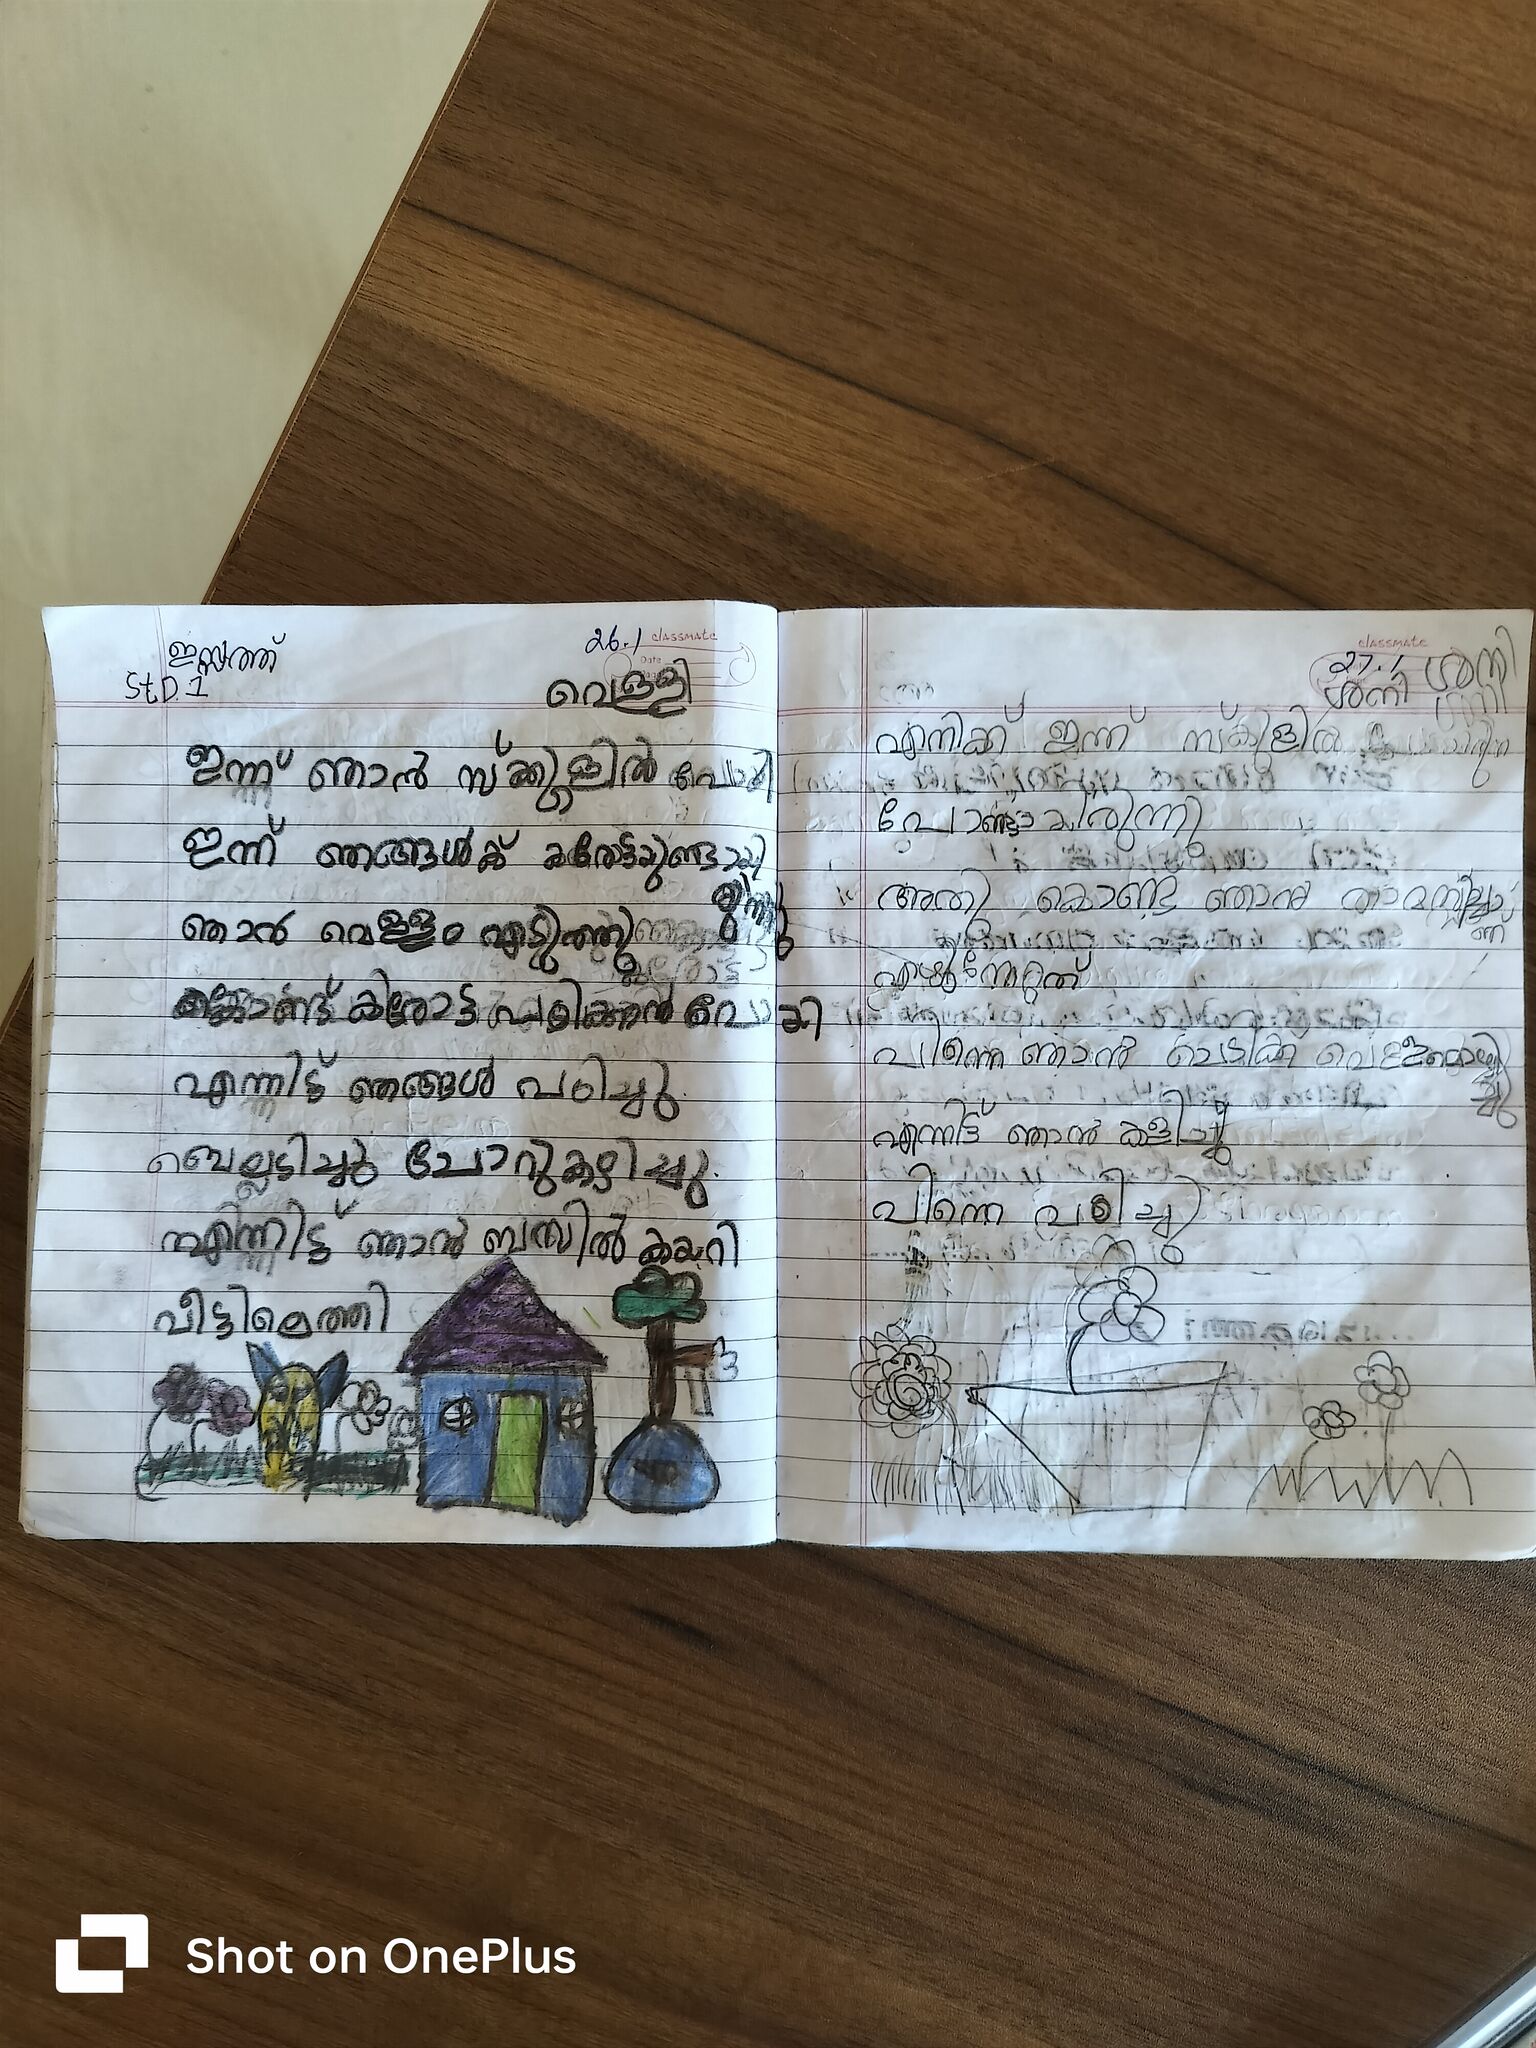 ഇസ്സത്ത്
STD.1
26.1
classmate
Date
വെള്ളി
ഇന്ന് ഞാൻ സ്ക്കൂളിൽ പോയി
ഇന്ന് ഞങ്ങൾക്ക് കരോട്ടയുണ്ടായി
രുന്നു
ഞാൻ വെള്ളം എടുത്തു
കരോട്ട പഠിക്കാൻ പോയി
എന്നിട്ട് ഞങ്ങൾ പഠിച്ചു
ബെല്ലടിച്ചു ചോറുകഴിച്ചു.
എന്നിട്ട് ഞാൻ ബസ്സിൽ കയറി
വീട്ടിലെത്തി
classmate
27.1
ശനി
ശനി
എനിക്ക് ഇന്ന് സ്കൂളിൽ
പോണ്ടായിരുന്നു
അതു കൊണ്ട് ഞാൻ താമസിച്ചാ
ണ്
എഴുന്നേറ്റത്
പിന്നെ ഞാൻ ചെടിക്ക് വെള്ളമൊഴി
ച്ചു
എന്നിട്ട് ഞാൻ കളിച്ചു
പിന്നെ പഠിച്ചു
Shot on OnePlus